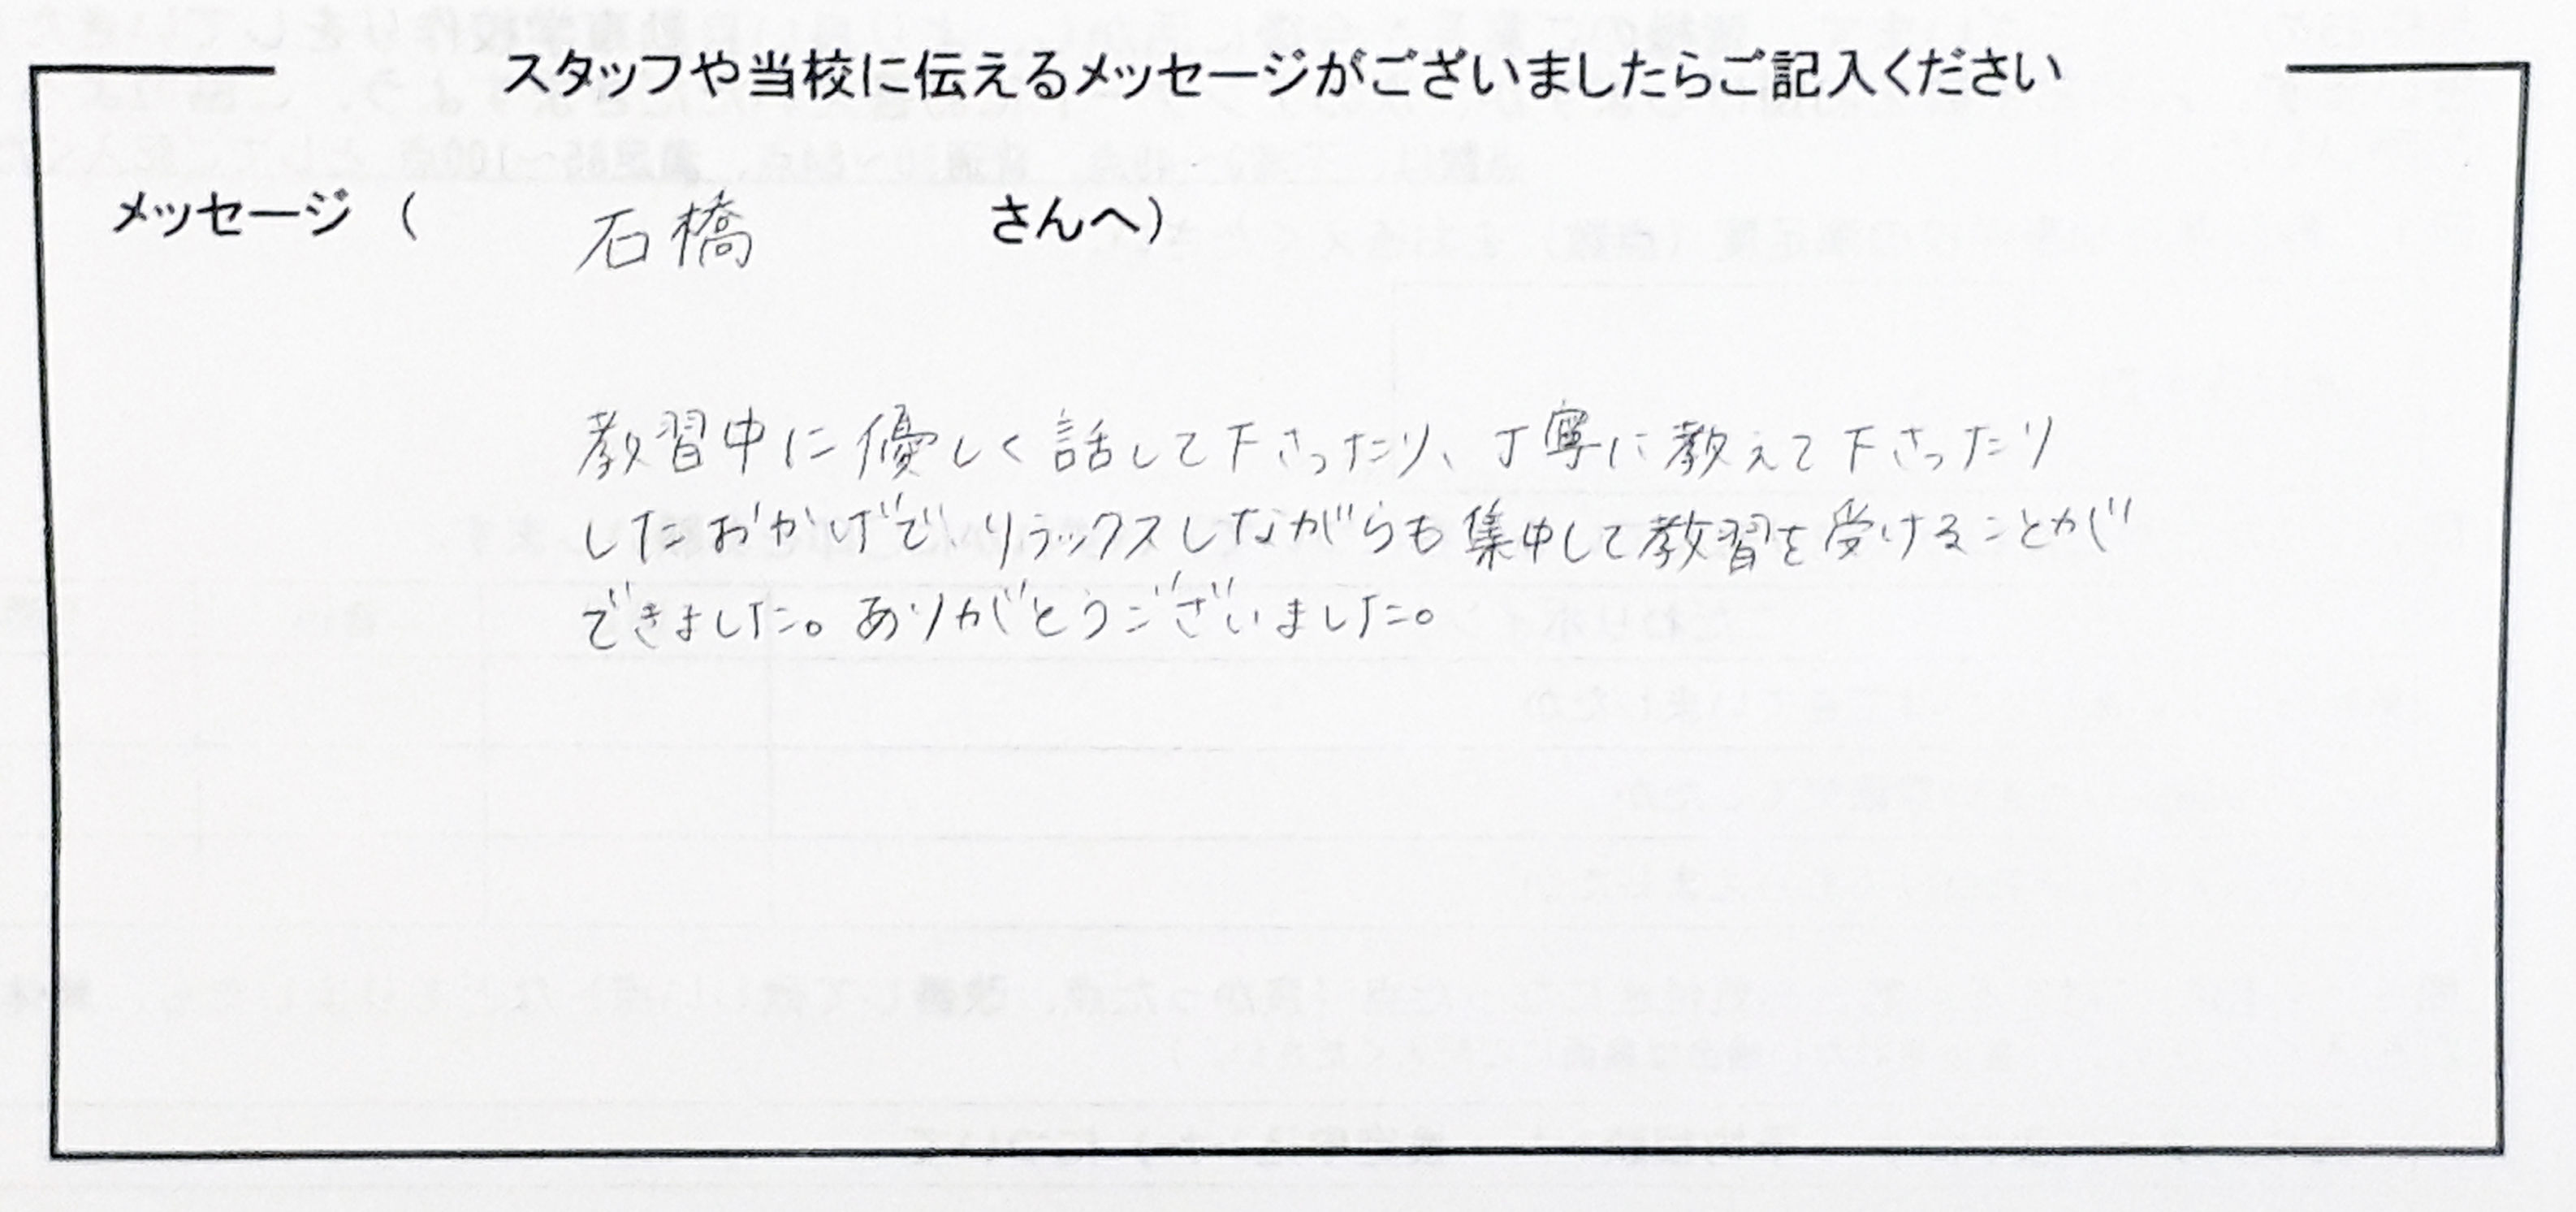 スタッフや当校に伝えるメッセージがございましたらご記入ください
メッセージ（ 石橋 さんへ）
教習中に優しく話して下さったり、丁寧に教えて下さったり
したおかげで、リラックスしながらも集中して教習を受けることが
できました。ありがとうございました。